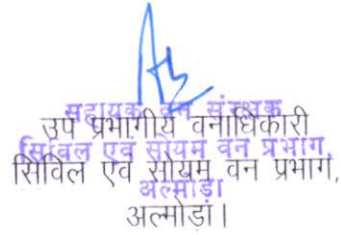 सहायक वन संरक्षक
उप प्रभागीय वनाधिकारी
सिविल एवं सोयम वन प्रभाग,
सिविल एवं सोयम वन प्रभाग,
अल्मोड़ा
अल्मोड़ा।